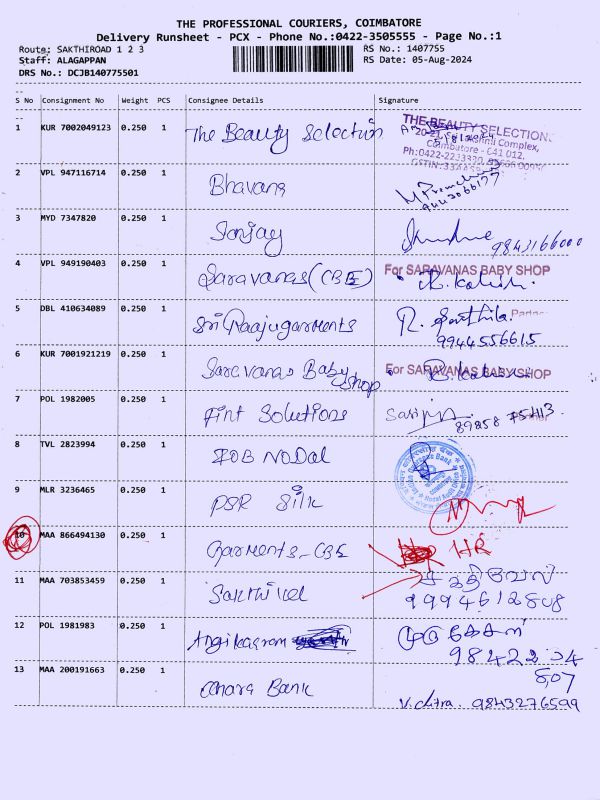 THE PROFESSIONAL COURIERS, COIMBATORE
Delivery Runsheet - PCX - Phone No.:0422-3505555 - Page No.:1
Route: SAKTHIROAD 1 2 3
RS No.: 1407755
Staff: ALAGAPPAN
RS Date: 05-Aug-2024
DRS No.: DCJB140775501
S No Consignment No Weight PCS Consignee Details Signature
1 KUR 7002049123 0.250 1 The Beauty Selection
THE BEAUTY SELECTION
Complex,
Coimbatore - 641 012.
Ph:0422-2233320,
2 VPL 947116714 0.250 1 Bhavana
3 MYD 7347820 0.250 1 Sanjay 9843166000
4 VPL 949190403 0.250 1 Saravanas (CBE) For SARAVANAS BABY SHOP
5 DBL 410634089 0.250 1 Sri Raajugarments R. Sarthila
9944556615
6 KUR 7001921219 0.250 1 Saravanas Baby Shop For SARAVANAS BABY SHOP
7 POL 1982005 0.250 1 Fint Solutions
8 TVL 2823994 0.250 1 IOB NODAL
9 MLR 3236465 0.250 1 PSR Silk
10 MAA 866494130 0.250 1 Garments-CBE HR
11 MAA 703853459 0.250 1 Sakthivel சக்திவேல்
9994612808
12 POL 1981983 0.250 1 முருகேசன்
98422 24
807
13 MAA 200191663 0.250 1 Bank
V. chitra. 9843276599